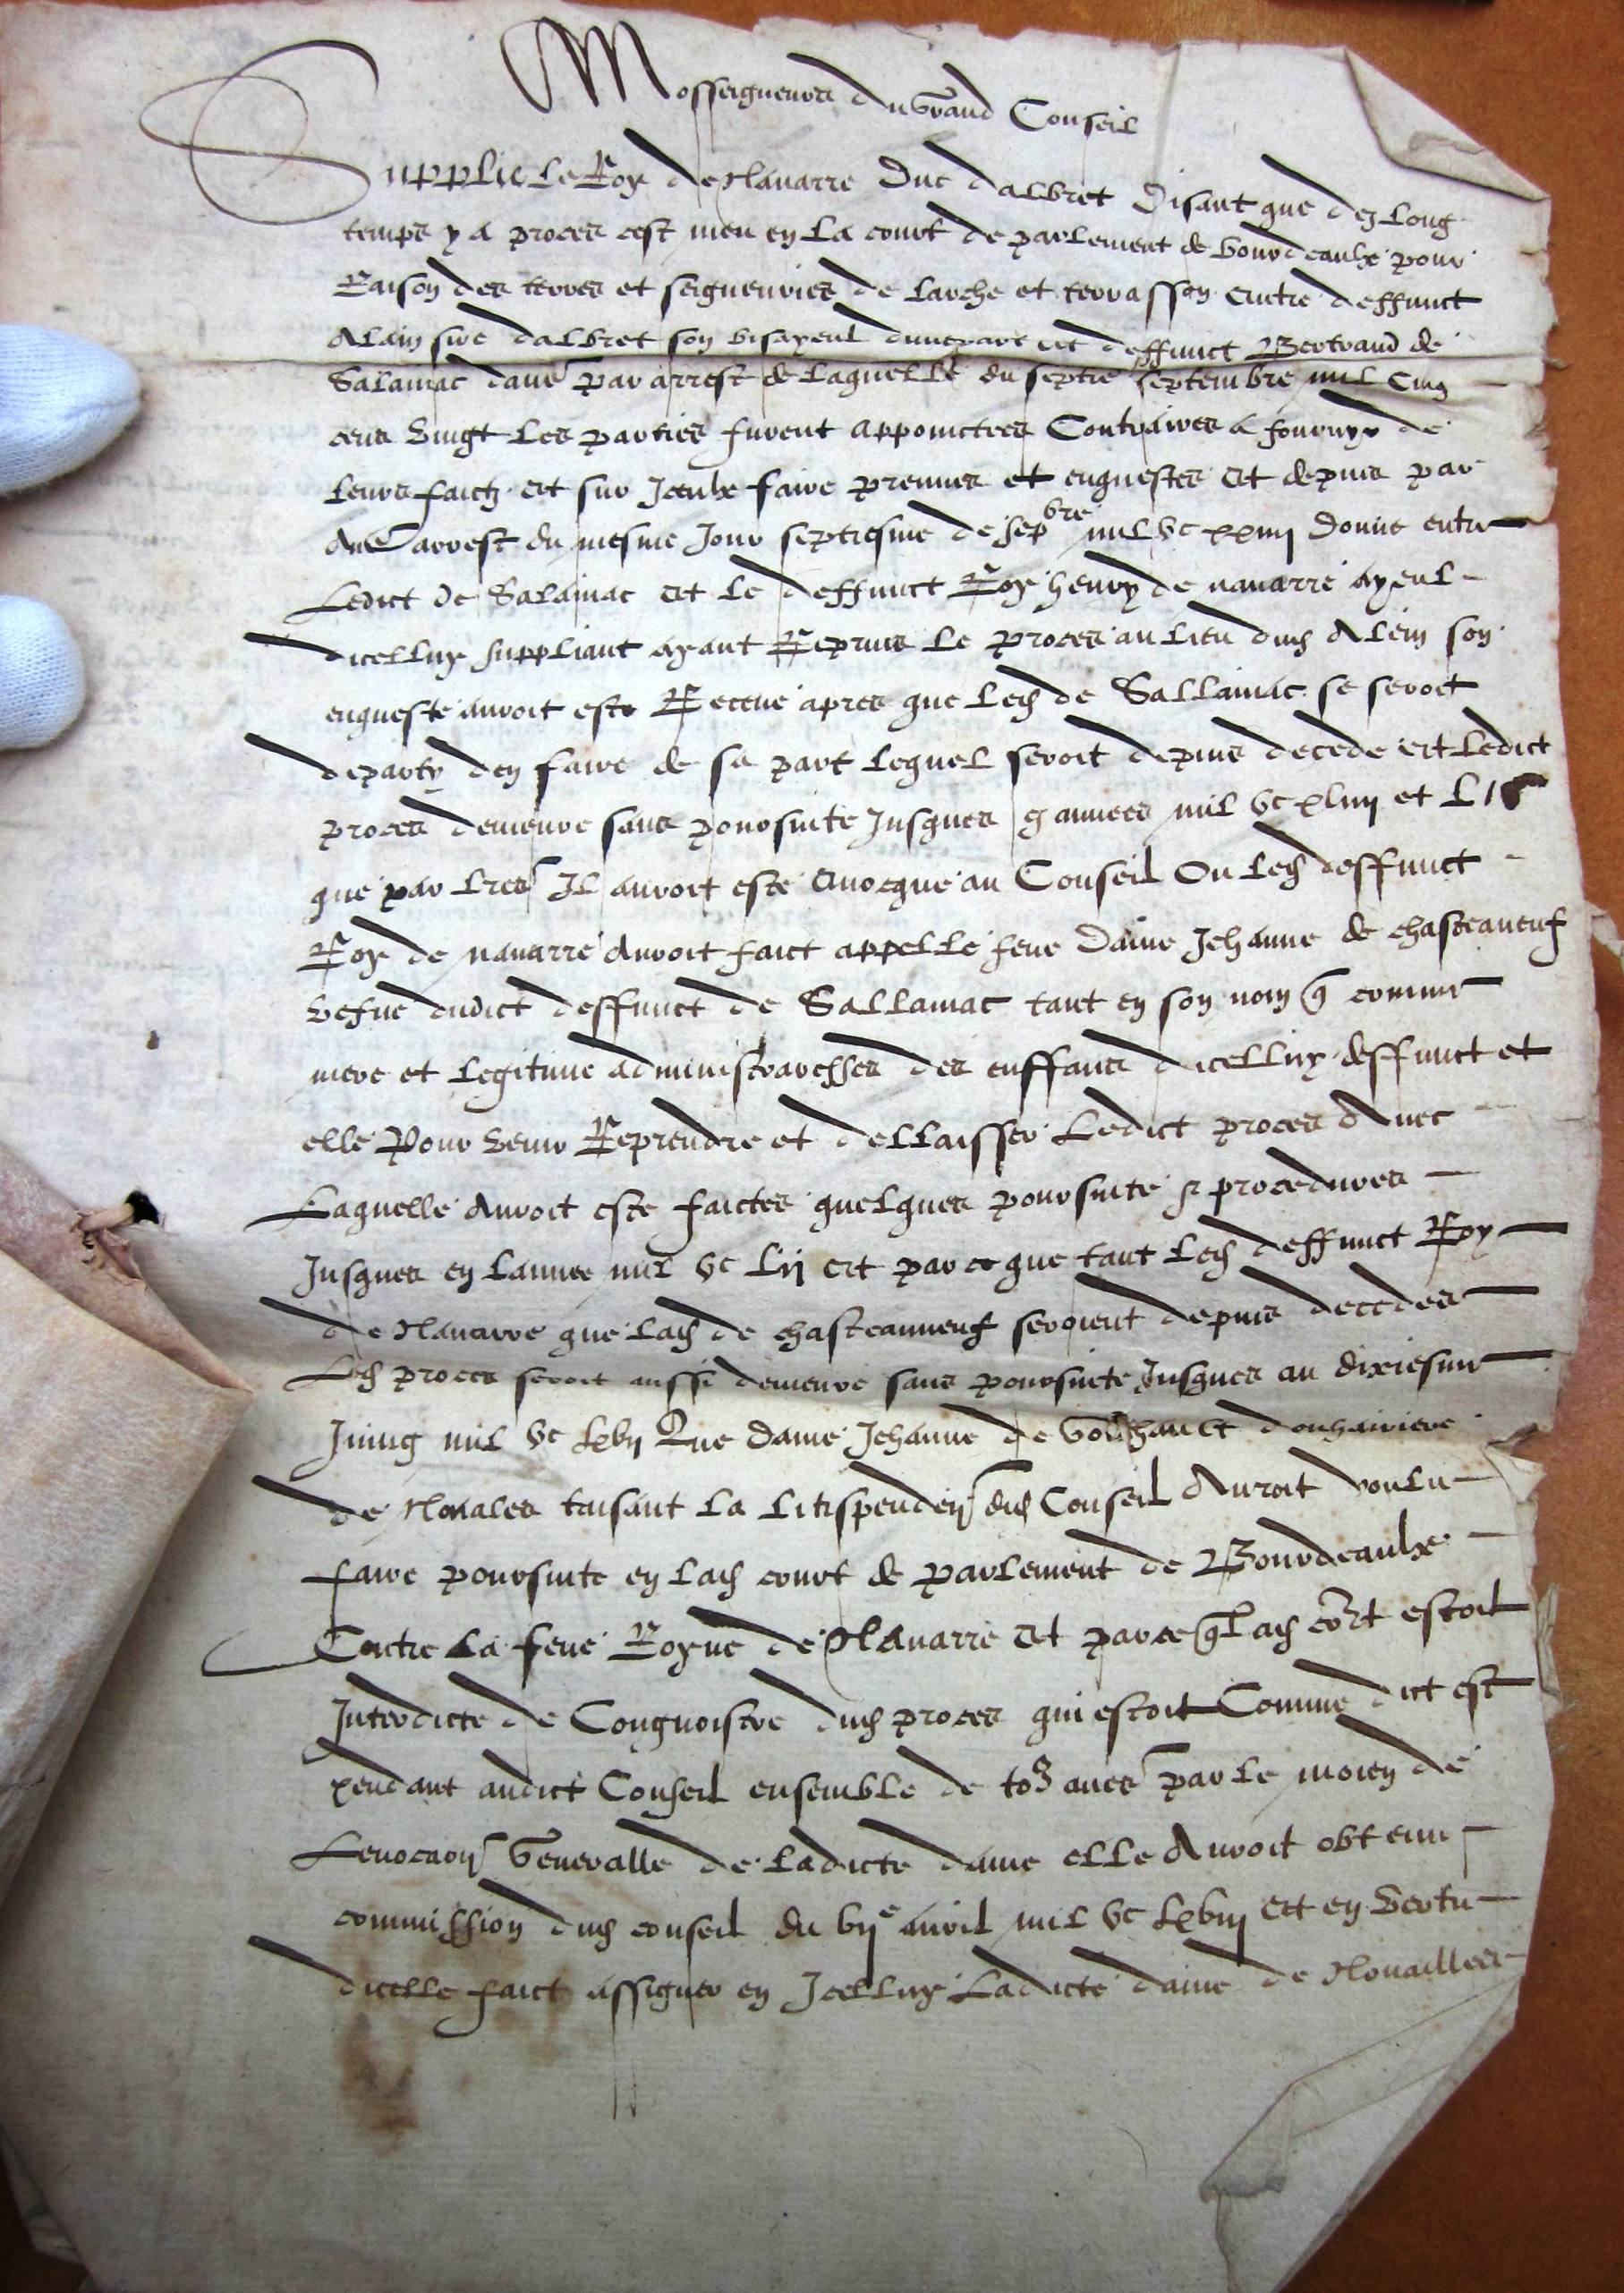 Mosseigneurs du Grand Conseil
Supplie le Roy de Navarre Duc dalbret Disant que dez long
temps y a proces cest meu en la court de parlement de bourdeaulx pour
Raison des terres et seigneuries de larche et terrasson entre deffunct
Alain sire dalbret son bisayeul dunepart et deffunct Bertrand de
Salaniac dauē par arrest de laquelle du septiē septembre mil cinq
cens vingt les parties furent appoinctees Contraires a fournyr de
leurs faictz et sur Iceulx faire preuves et enquestes et depuis par
aūe arrest du mesme Jour septiesme de sepbre mil vc xxiiij donne entre
Ledict de Salaniac et le deffunct Roy henry de navarre ayeul
dicelluy suppliant ayant Reprins le proces au lieu dud Alein son
enqueste auroit este Receue apres que led de Sallaniac se seroit
departy den faire de sa part lequel seroit depuis decede et Ledict
proces demeure sans poursuite Jusques q annees mil vc xliiij et
que par lres Il auroit este evocque au Conseil Ou led deffunct
Roy de navarre Auroit faict appelle feue Dame Jehanne de chasteauneuf
vefve dudict deffunct de Sallaniac tant en son nom q comme
mere et legitime administraresses des enffans dicelluy deffunct et
elle Pour venir Reprendre et dellaisser Ledict proces Avec
Laquelle Auroit este faictes quelques poursuite & procedures
Jusques en lannee mil vc lij et par ce que tant led deffunct Roy
de Navarre que lad de chasteauneuf seroient depuis decedes
Led proces seroit aussi demeure sans poursuite Jusques au dixiesme
Juing mil vc lxvij Que dame Jehanne de douhairiere
de Noales taisant la litispenden dud Conseil Auroit voulu
faire poursuite en lad court de parlement de Bourdeaulx
Contre la feue Royne de Navarre et parce q lad cort estoit
Interdicte de Congnoistre dud proces qui estoit Comme dict est
pendant audict Conseil ensemble de to9 aues par le moien de
Levocaon Generalle de ladicte dame elle Auroit obtenu
commission dud conseil du vije avril mil vc lxviij et en vertu
dicelle faict assigner en Icelluy Ladicte dame de Nouailles